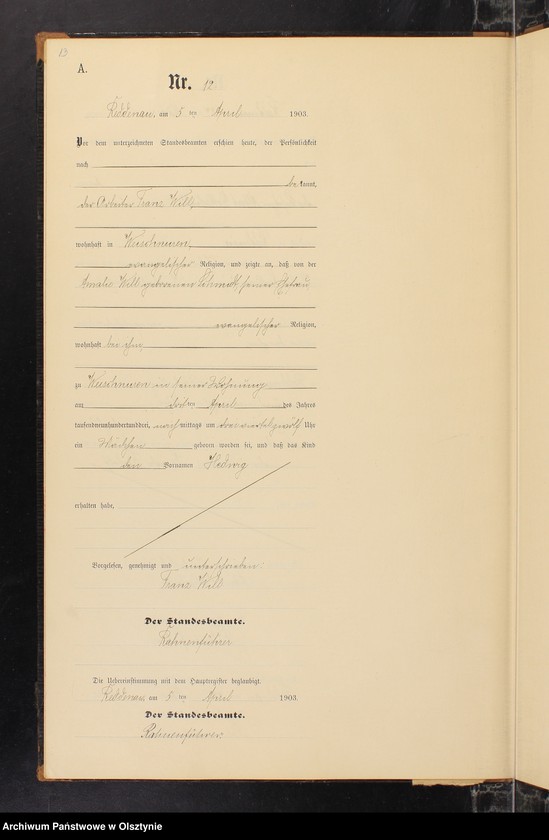 13
A.
Nr. 12
Reddenau, am 5 ten April 1903.
Vor dem unterzeichneten Standesbeamten erschien heute, der Persönlichkeit
nach
bekannt,
der Arbeiter Franz Will,
wohnhaft in
evangelischer Religion, und zeigte an, daß von der
Amalie Will geborenen Schmidt, seiner Ehefrau
evangelischer Religion,
wohnhaft bei ihm
zu in seiner Wohnung
am dritten April des Jahres
tausendneunhundertunddrei, nachmittags um dreiviertelzwölf Uhr
ein Mädchen geboren worden sei, und daß das Kind
den Vornamen Hedwig
erhalten habe,
Vorgelesen, genehmigt und unterschrieben:
Franz Will
Der Standesbeamte.
Die Uebereinstimmung mit dem Hauptregister beglaubigt.
Reddenau, am 5 ten April 1903.
Der Standesbeamte.
Archiwum Państwowe w Olsztynie